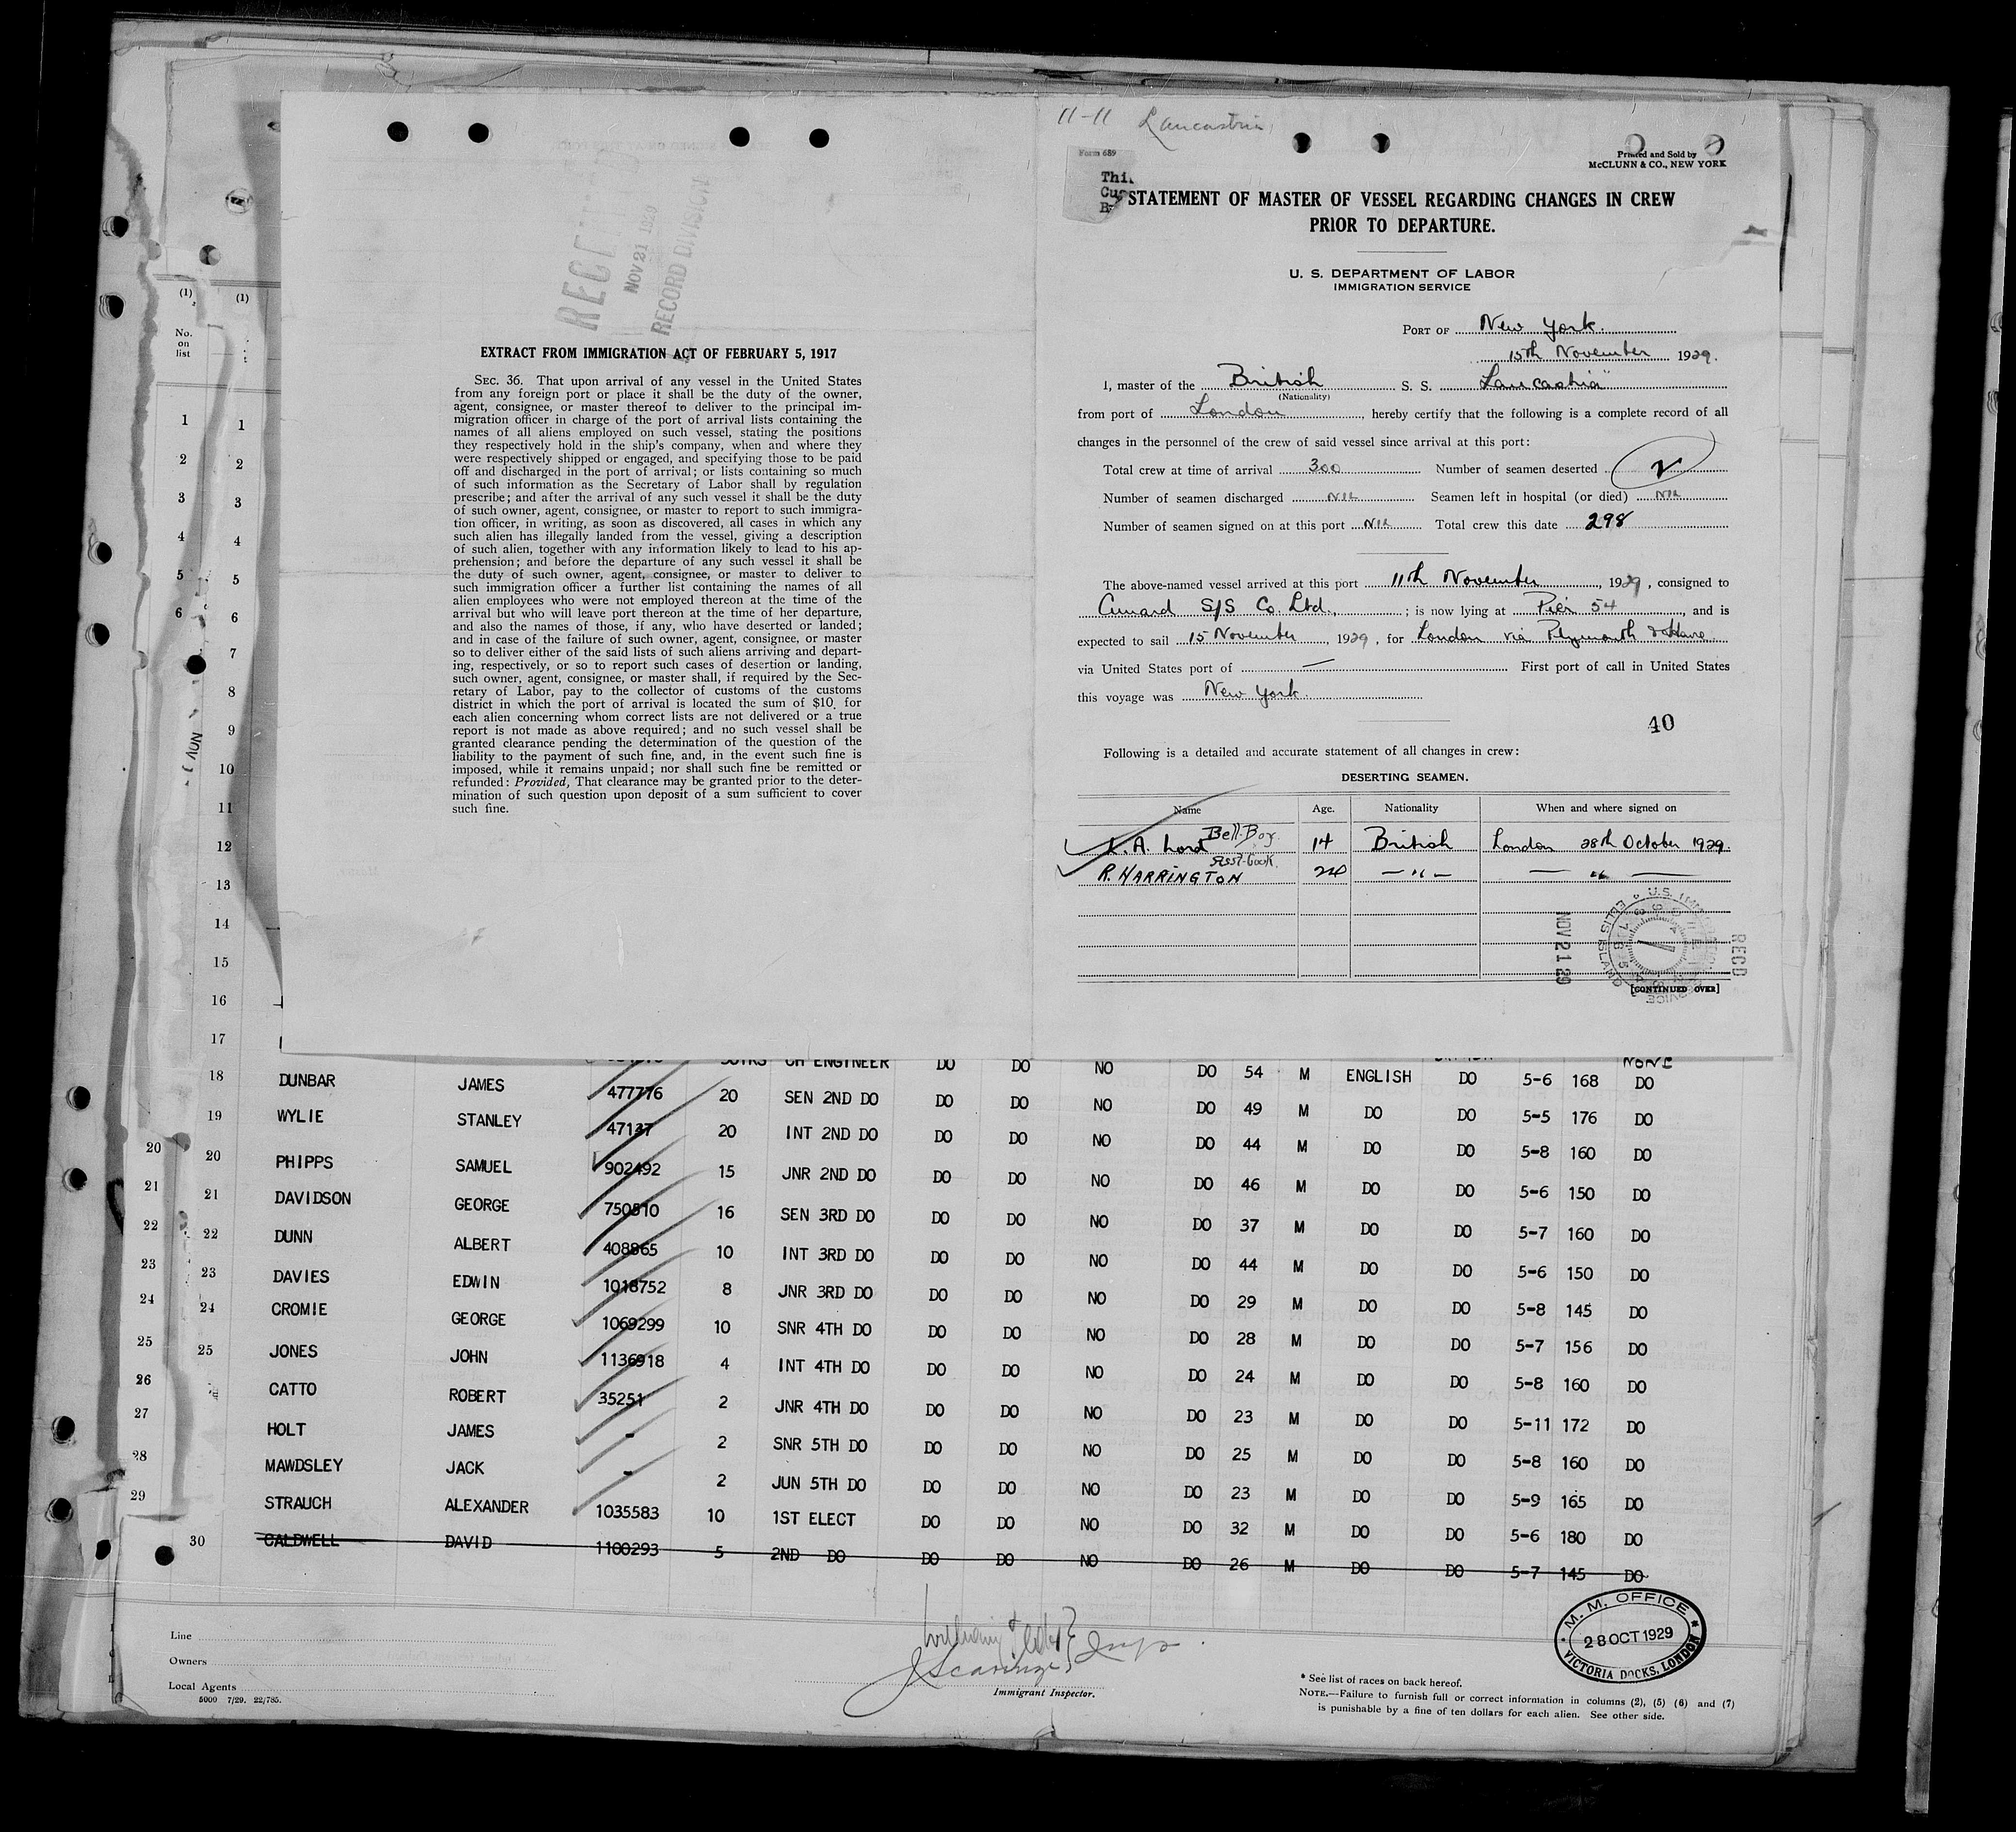 11-11 Lancastria
Form 689
Printed and Sold by
McCLUNN & CO., NEW YORK
STATEMENT OF MASTER OF VESSEL REGARDING CHANGES IN CREW
PRIOR TO DEPARTURE.
U. S. DEPARTMENT OF LABOR
IMMIGRATION SERVICE
PORT OF New York.
15th November 1929.
I, master of the British S. S. Lancastria"
(Nationality)
from port of London, hereby certify that the following is a complete record of all
changes in the personnel of the crew of said vessel since arrival at this port:
Total crew at time of arrival 300 Number of seamen deserted 2
Number of seamen discharged Nil Seamen left in hospital (or died) Nil
Number of seamen signed on at this port Nil Total crew this date 298
The above-named vessel arrived at this port 11th November, 1929, consigned to
Cunard S/S Co. Ltd., ; is now lying at Pier 54, and is
expected to sail 15 November, 1929, for London via Plymouth & Havre
via United States port of — First port of call in United States
this voyage was New York.
40
Following is a detailed and accurate statement of all changes in crew:
DESERTING SEAMEN.
Name Age. Nationality When and where signed on
A. Lord Bell-Boy. 14 British London 28th October 1929.
R. HARRINGTON Asst-Cook. — " — — " —
NOV 21 29
RECD
ELLIS ISLAND
[CONTINUED OVER]
NOV 21 1929
RECORD DIVISION
EXTRACT FROM IMMIGRATION ACT OF FEBRUARY 5, 1917
SEC. 36. That upon arrival of any vessel in the United States
from any foreign port or place it shall be the duty of the owner,
agent, consignee, or master thereof to deliver to the principal im-
migration officer in charge of the port of arrival lists containing the
names of all aliens employed on such vessel, stating the positions
they respectively hold in the ship's company, when and where they
were respectively shipped or engaged, and specifying those to be paid
off and discharged in the port of arrival; or lists containing so much
of such information as the Secretary of Labor shall by regulation
prescribe; and after the arrival of any such vessel it shall be the duty
of such owner, agent, consignee, or master to report to such immigra-
tion officer, in writing, as soon as discovered, all cases in which any
such alien has illegally landed from the vessel, giving a description
of such alien, together with any information likely to lead to his ap-
prehension; and before the departure of any such vessel it shall be
the duty of such owner, agent, consignee, or master to deliver to
such immigration officer a further list containing the names of all
alien employees who were not employed thereon at the time of the
arrival but who will leave port thereon at the time of her departure,
and also the names of those, if any, who have deserted or landed;
and in case of the failure of such owner, agent, consignee, or master
so to deliver either of the said lists of such aliens arriving and depart-
ing, respectively, or so to report such cases of desertion or landing,
such owner, agent, consignee, or master shall, if required by the Sec-
retary of Labor, pay to the collector of customs of the customs
district in which the port of arrival is located the sum of $10 for
each alien concerning whom correct lists are not delivered or a true
report is not made as above required; and no such vessel shall be
granted clearance pending the determination of the question of the
liability to the payment of such fine, and, in the event such fine is
imposed, while it remains unpaid; nor shall such fine be remitted or
refunded: Provided, That clearance may be granted prior to the deter-
mination of such question upon deposit of a sum sufficient to cover
such fine.
(1) (1)
No.
on
list
1 1
2 2
3 3
4 4
5 5
6 6
7
8
9
10
11
12
13
14
15
16
17
CH ENGINEER DO DO NO NONE
18 DUNBAR JAMES 477776 20 SEN 2ND DO DO DO NO DO 54 M ENGLISH DO 5-6 168 DO
19 WYLIE STANLEY 47137 20 INT 2ND DO DO DO NO DO 49 M DO DO 5-5 176 DO
20 20 PHIPPS SAMUEL 902492 15 JNR 2ND DO DO DO NO DO 44 M DO DO 5-8 160 DO
21 21 DAVIDSON GEORGE 750810 16 SEN 3RD DO DO DO NO DO 46 M DO DO 5-6 150 DO
22 22 DUNN ALBERT 408865 10 INT 3RD DO DO DO NO DO 37 M DO DO 5-7 160 DO
23 23 DAVIES EDWIN 1018752 8 JNR 3RD DO DO DO NO DO 44 M DO DO 5-6 150 DO
24 24 CROMIE GEORGE 1069299 10 SNR 4TH DO DO DO NO DO 29 M DO DO 5-8 145 DO
25 25 JONES JOHN 1136918 4 INT 4TH DO DO DO NO DO 28 M DO DO 5-7 156 DO
26 CATTO ROBERT 35251 2 JNR 4TH DO DO DO NO DO 24 M DO DO 5-8 160 DO
27 HOLT JAMES - 2 SNR 5TH DO DO DO NO DO 23 M DO DO 5-11 172 DO
28 MAWDSLEY JACK - 2 JUN 5TH DO DO DO NO DO 25 M DO DO 5-8 160 DO
29 STRAUCH ALEXANDER 1035583 10 1ST ELECT DO DO NO DO 23 M DO DO 5-9 165 DO
30 CALDWELL DAVID 1100293 5 2ND DO DO DO NO DO 32 M DO DO 5-6 180 DO
DO 26 M DO DO 5-7 145 DO
Line
Owners
Local Agents
5000 7/29. 22/785.
Immigrant Inspector.
M. M. OFFICE
28 OCT 1929
VICTORIA DOCKS, LONDON
* See list of races on back hereof.
NOTE.—Failure to furnish full or correct information in columns (2), (5) (6) and (7)
is punishable by a fine of ten dollars for each alien. See other side.